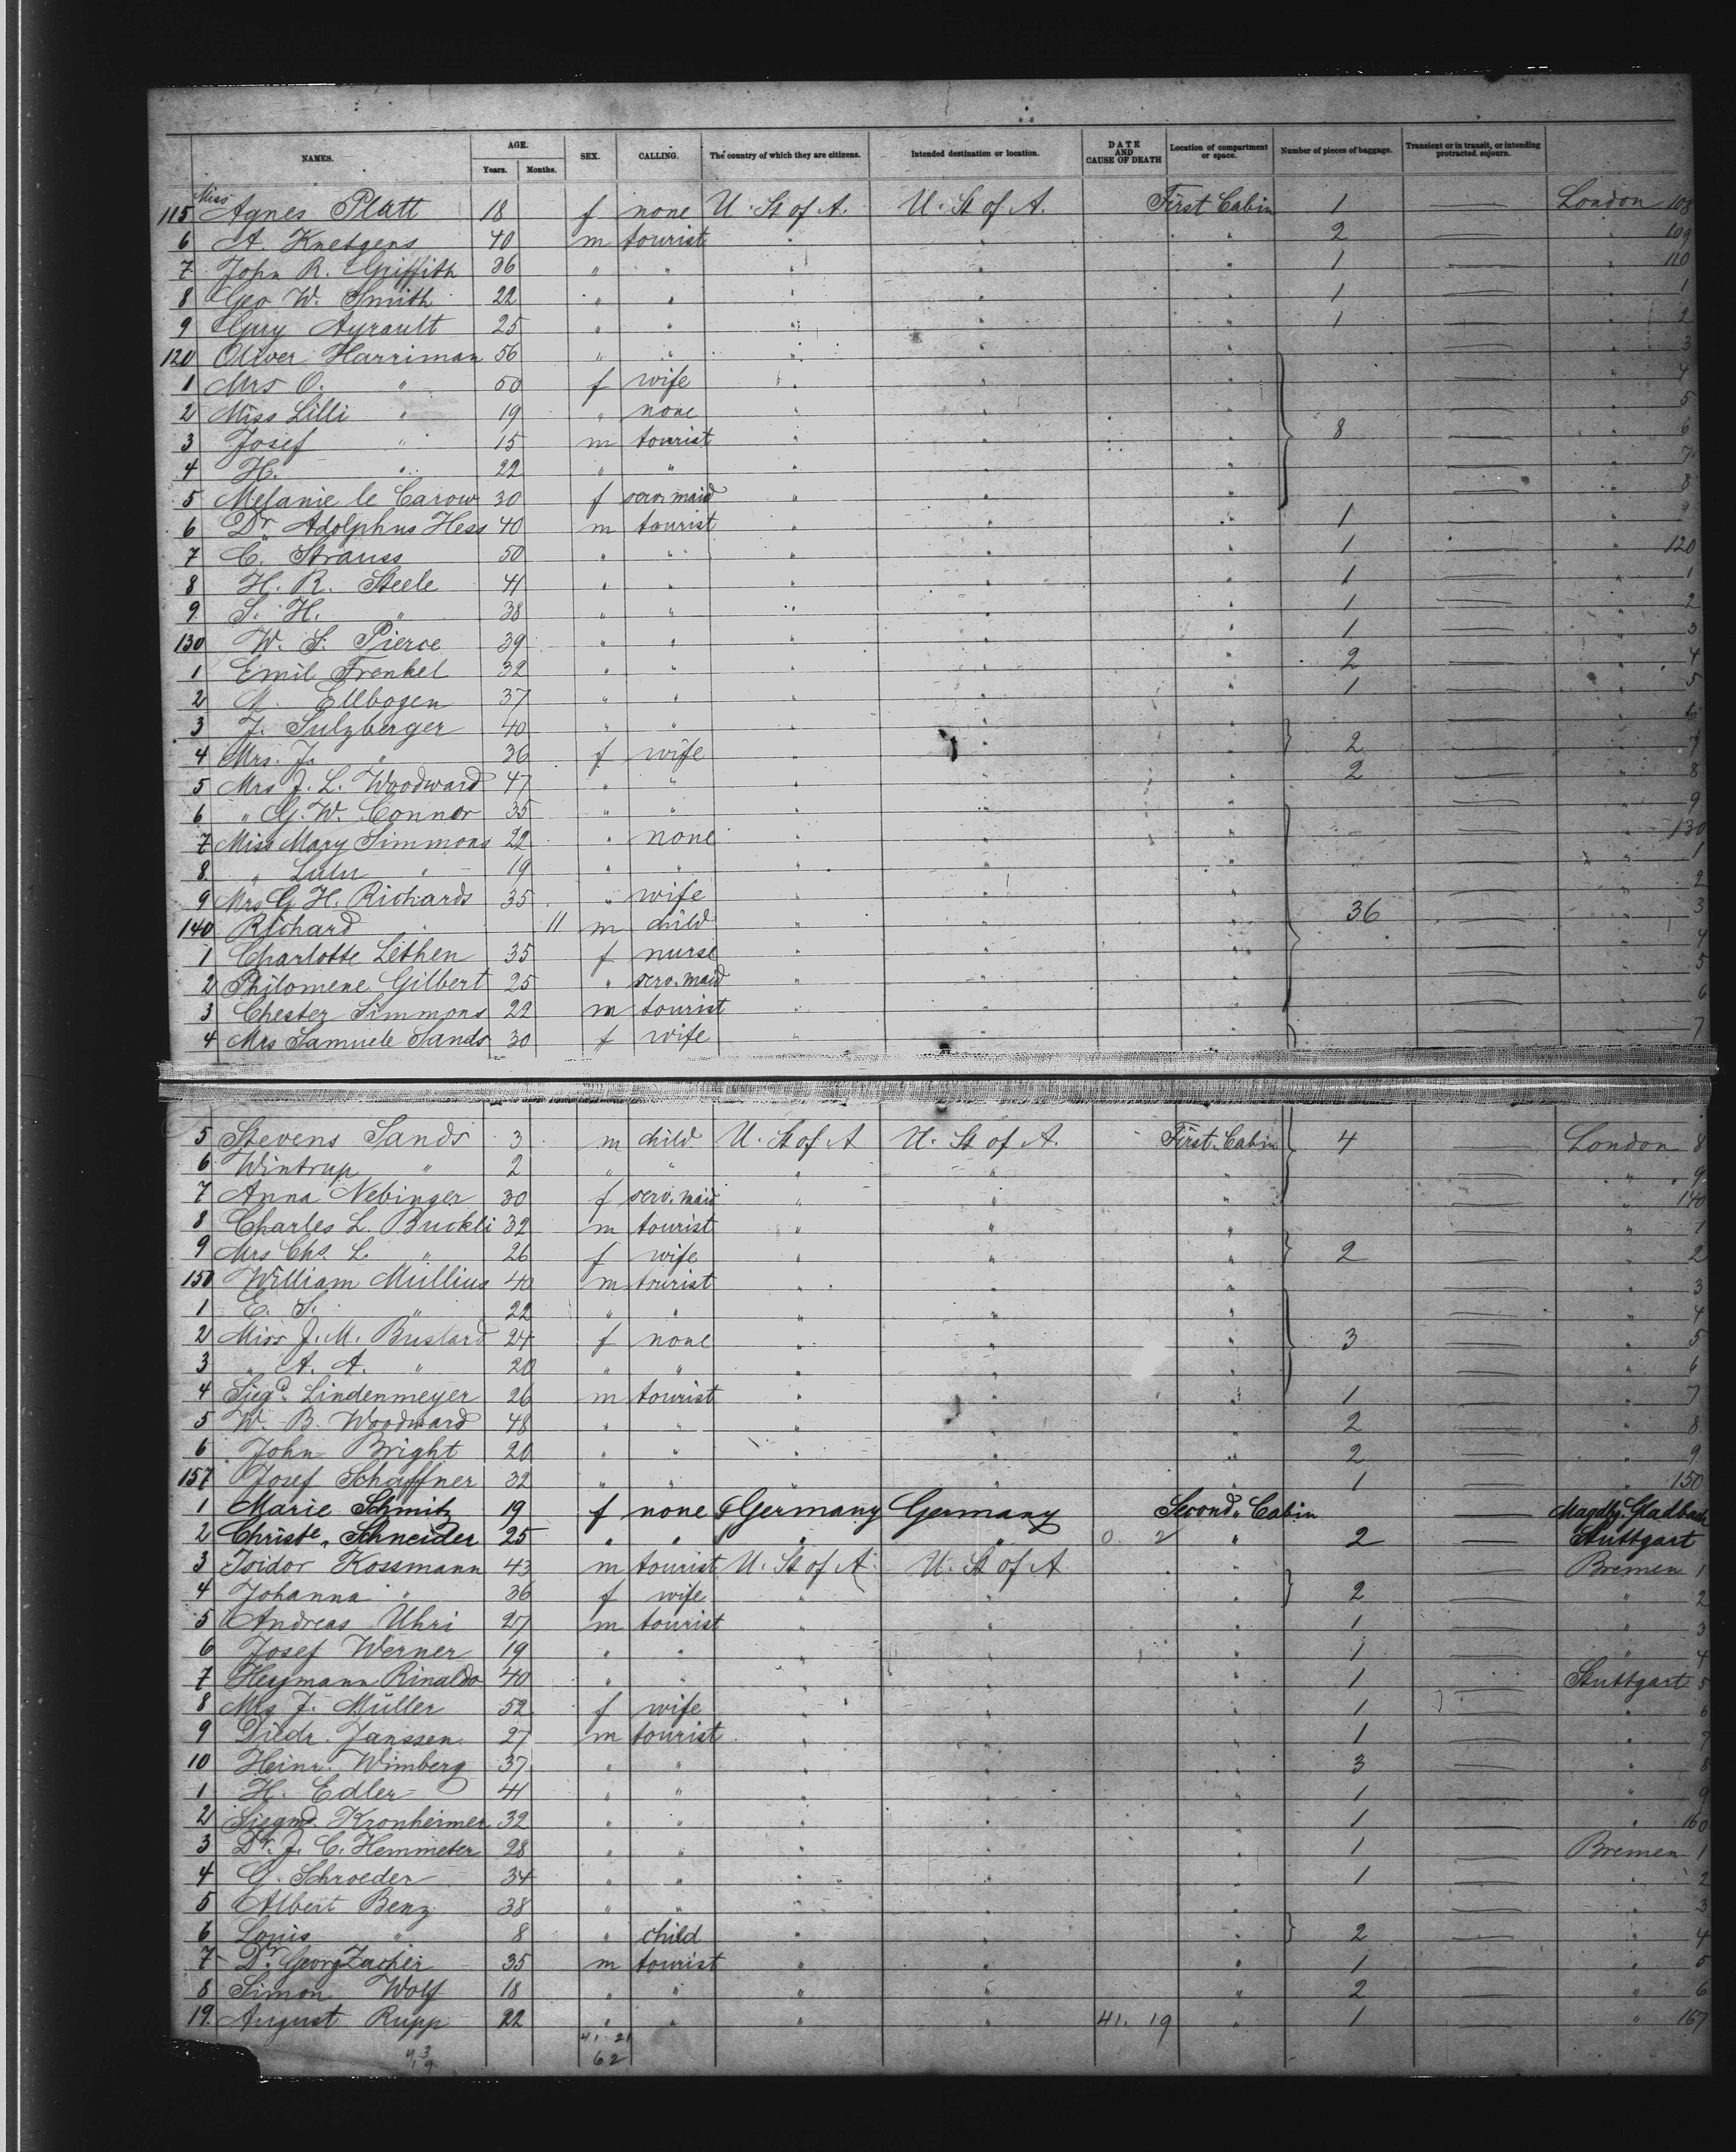 NAMES. AGE. Years. Months. SEX. CALLING. The country of which they are citizens. Intended destination or location. DATE AND CAUSE OF DEATH Location of compartment or space. Number of pieces of baggage. Transient or in transit, or intending protracted sojourn.
115 Miss Agnes Platt 18 f none U. St of A. U. St of A. First Cabin 1 — London 108
6 A. Knetgens 40 m tourist " " " 2 — " 109
7 John R. Griffith 36 " " " " " 1 — " 110
8 Geo W. Smith 22 " " " " " 1 — " 1
9 Guy Ayrault 25 " " " " " 1 — " 2
120 Oliver Harriman 56 " " " " " — " 3
1 Mrs O. " 50 f wife " " " — " 4
2 Miss Lilli " 19 " none " " " — " 5
3 Josef " 15 m tourist " " " 8 — " 6
4 H. " 22 " " " " " — " 7
5 Melanie le Carow 30 f serv. maid " " " — " 8
6 Dr. Adolphus Hess 40 m tourist " " " 1 — " 9
7 C. Strauss 50 " " " " " 1 — " 120
8 H. R. Steele 41 " " " " " 1 — " 1
9 S. H. " 38 " " " " " 1 — " 2
130 W. S. Pierce 39 " " " " " 1 — " 3
1 Emil Frenkel 32 " " " " " 2 — " 4
2 Ellbogen 37 " " " " " 1 — " 5
3 J. Sulzberger 40 " " " " " — " 6
4 Mrs. J. " 36 f wife " " " 2 — " 7
5 Mrs J. L. Woodward 47 " " " " " 2 — " 8
6 " G. W. Connor 35 " " " " " — " 9
7 Miss Mary Simmons 22 " none " " " — " 130
8 " Lulu " 19 " " " " " — " 1
9 Mrs G. H. Richards 35 " wife " " " — " 2
140 Richard " 11 m child " " " 36 — " 3
1 Charlotte Lethen 35 f nurse " " " — " 4
2 Philomene Gilbert 25 " serv. maid " " " — " 5
3 Chester Simmons 22 m tourist " " " — " 6
4 Mrs Samuele Sands 30 f wife " " " — " 7
5 Stevens Sands 3 m child U. St of A U. St of A. First Cabin 4 — London 8
6 Wintrup " 2 " " " " " — " 9
7 Anna Nebinger 30 f serv. maid " " " — " 140
8 Charles L. Buckli 32 m tourist " " " — " 1
9 Mrs Chs. L. " 26 f wife " " " 2 — " 2
150 William Müllius 40 m tourist " " " — " 3
1 E. S. " 22 " " " " " — " 4
2 Miss J. M. Bustard 24 f none " " " 3 — " 5
3 " A. A. " 20 " " " " " — " 6
4 Siegd. Lindenmeyer 26 m tourist " " " 1 — " 7
5 W. B. Woodward 48 " " " " " 2 — " 8
6 John Bright 20 " " " " " 2 — " 9
157 Josef Schaffner 32 " " " " " 1 — " 150
1 Marie Schmitz 19 f none Germany Germany Second Cabin — Gladbach
2 Christe. Schneider 25 " " " " 0 2 " 2 — Stuttgart
3 Isidor Kossmann 43 m tourist U. St of A U. St of A " — Bremen 1
4 Johanna " 36 f wife " " " 2 — " 2
5 Andreas Uhri 27 m tourist " " " 1 — " 3
6 Josef Werner 19 " " " " " 1 — " 4
7 Heymann Rinaldo 40 " " " " " 1 — Stuttgart 5
8 Mrs J. Müller 52 f wife " " " 1 — " 6
9 Diedr. Janssen 27 m tourist " " " 1 — " 7
10 Heinr. Wimberg 37 " " " " " 3 — " 8
1 H. Edler 41 " " " " " 1 — " 9
2 Siegmd. Kronheimer 32 " " " " " 1 — " 160
3 Dr. J. C. Hemmeter 28 " " " " " 1 — Bremen 1
4 G. Schroeder 34 " " " " " 1 — " 2
5 Albert Benz 38 " " " " " — " 3
6 Louis " 8 " child " " " 2 — " 4
7 Dr. Georg Zacher 35 m tourist " " " 1 — " 5
8 Simon Wolf 18 " " " " " 2 — " 6
19. August Rupp 22 " " " " 41. 19 " 1 — " 167
41. 21
62